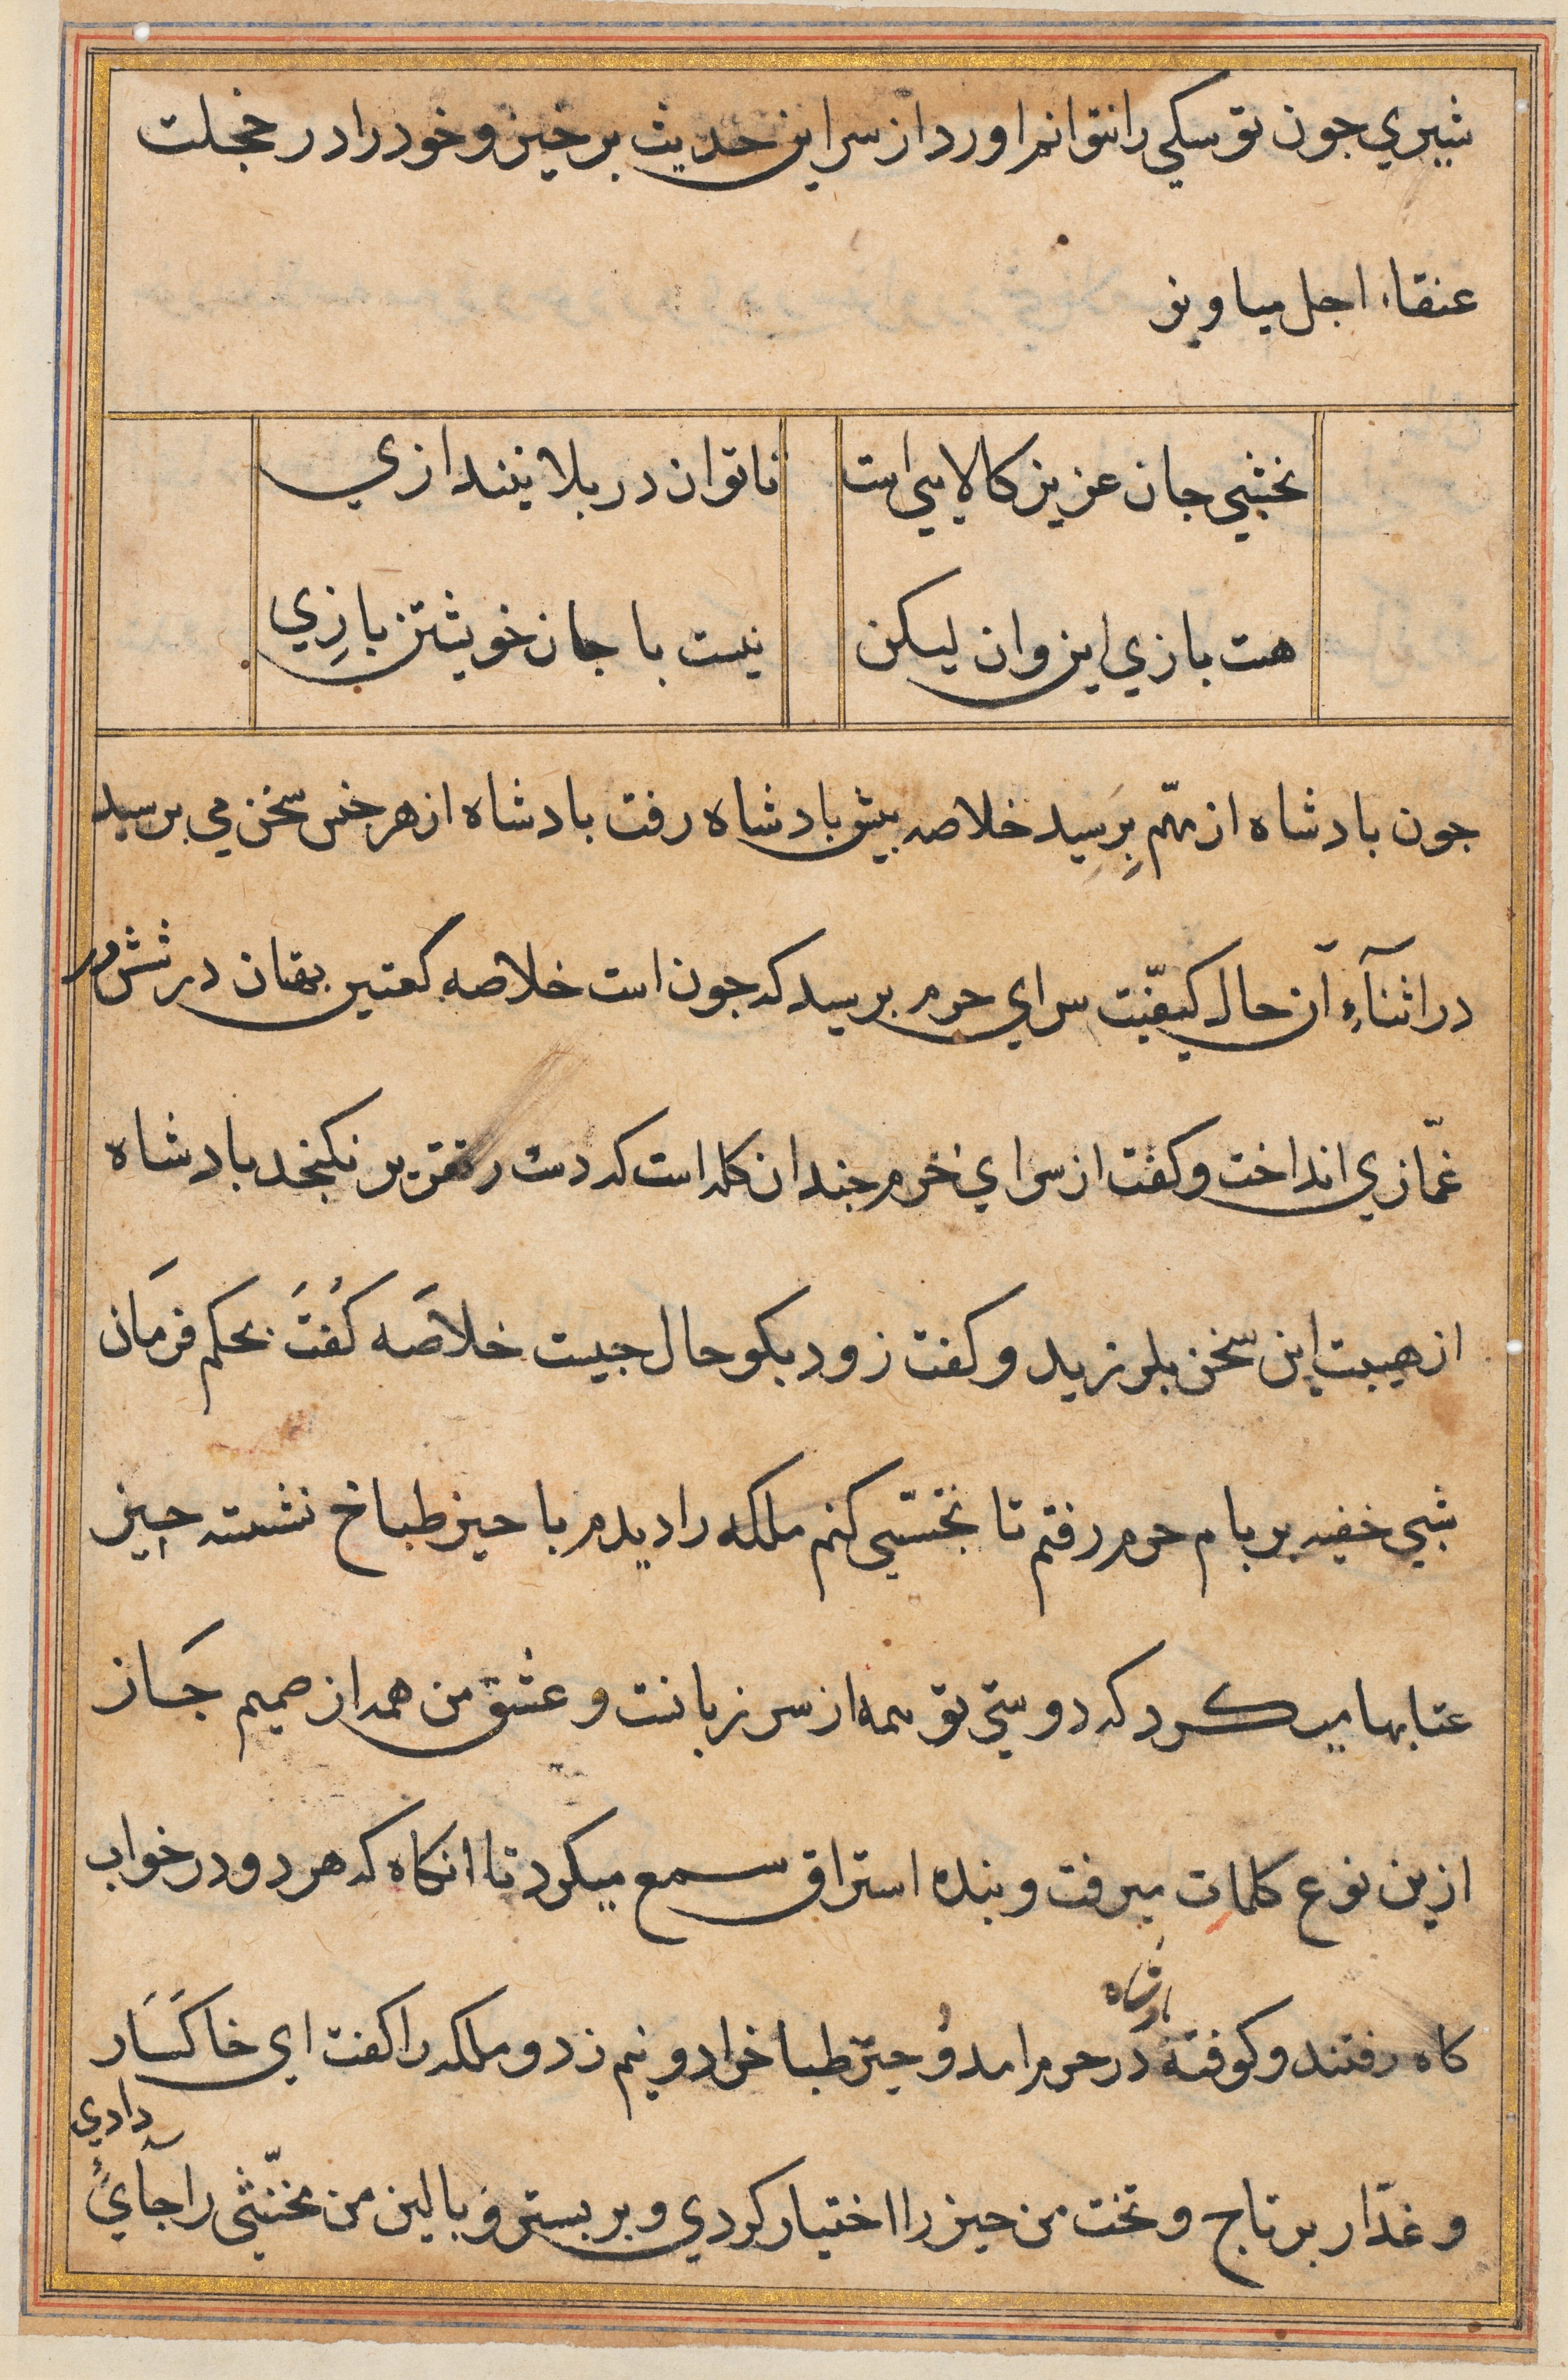 شیري جون تو سکي را نتوانم اورد از سر این حدیث برخیز و خود را در خجلت
عنقاء اجل میاویز
نخشبي جان عزیز کالایي است
ناتوان در بلا نیندازي
هست بازي این وان لیکن
نیست با جان خویشتن بازِي
جون بادشاه از مهّم بِرَسِید خلاصه بیش بادشاه رفت بادشاه از هر جنس سخن مي برسید
در اثنآءِ آن حال کیفیّت سراي حرم برسید که جون است خلاصه کعتین بهتان در شش در
غمّازي انداخت و کفت از سراي حرم جندان کله است که دست در تقریر نکنجد بادشاه
از هیبت این سخن بلرزید و کفت زود بکو حال جیست خلاصَه کُفتَ بحکم فرمَان
شبي خفیه بر بام حرم رفتم تا تجسّسي کنم ملکه را دیدم با حیز طباخ نشسته جیز
عتابها میکرد که دوستي تو همه از سر زبانست و عشق من همه از صمیم جَان
ازین نوع کلمات میرفت و بنده استراق سمع میکرد تا انکاه که هر دو در خواب
بادشاه
کاه رفتند و کوفته در حرم امد و حیز طباخرا دو نیم زد و ملکه را کفت اي خاکسَار
دادي
و غدّار بر تاج و تخت من حیز را اختیار کردي و بر بستر و بالین من مخنّثي را جآئ